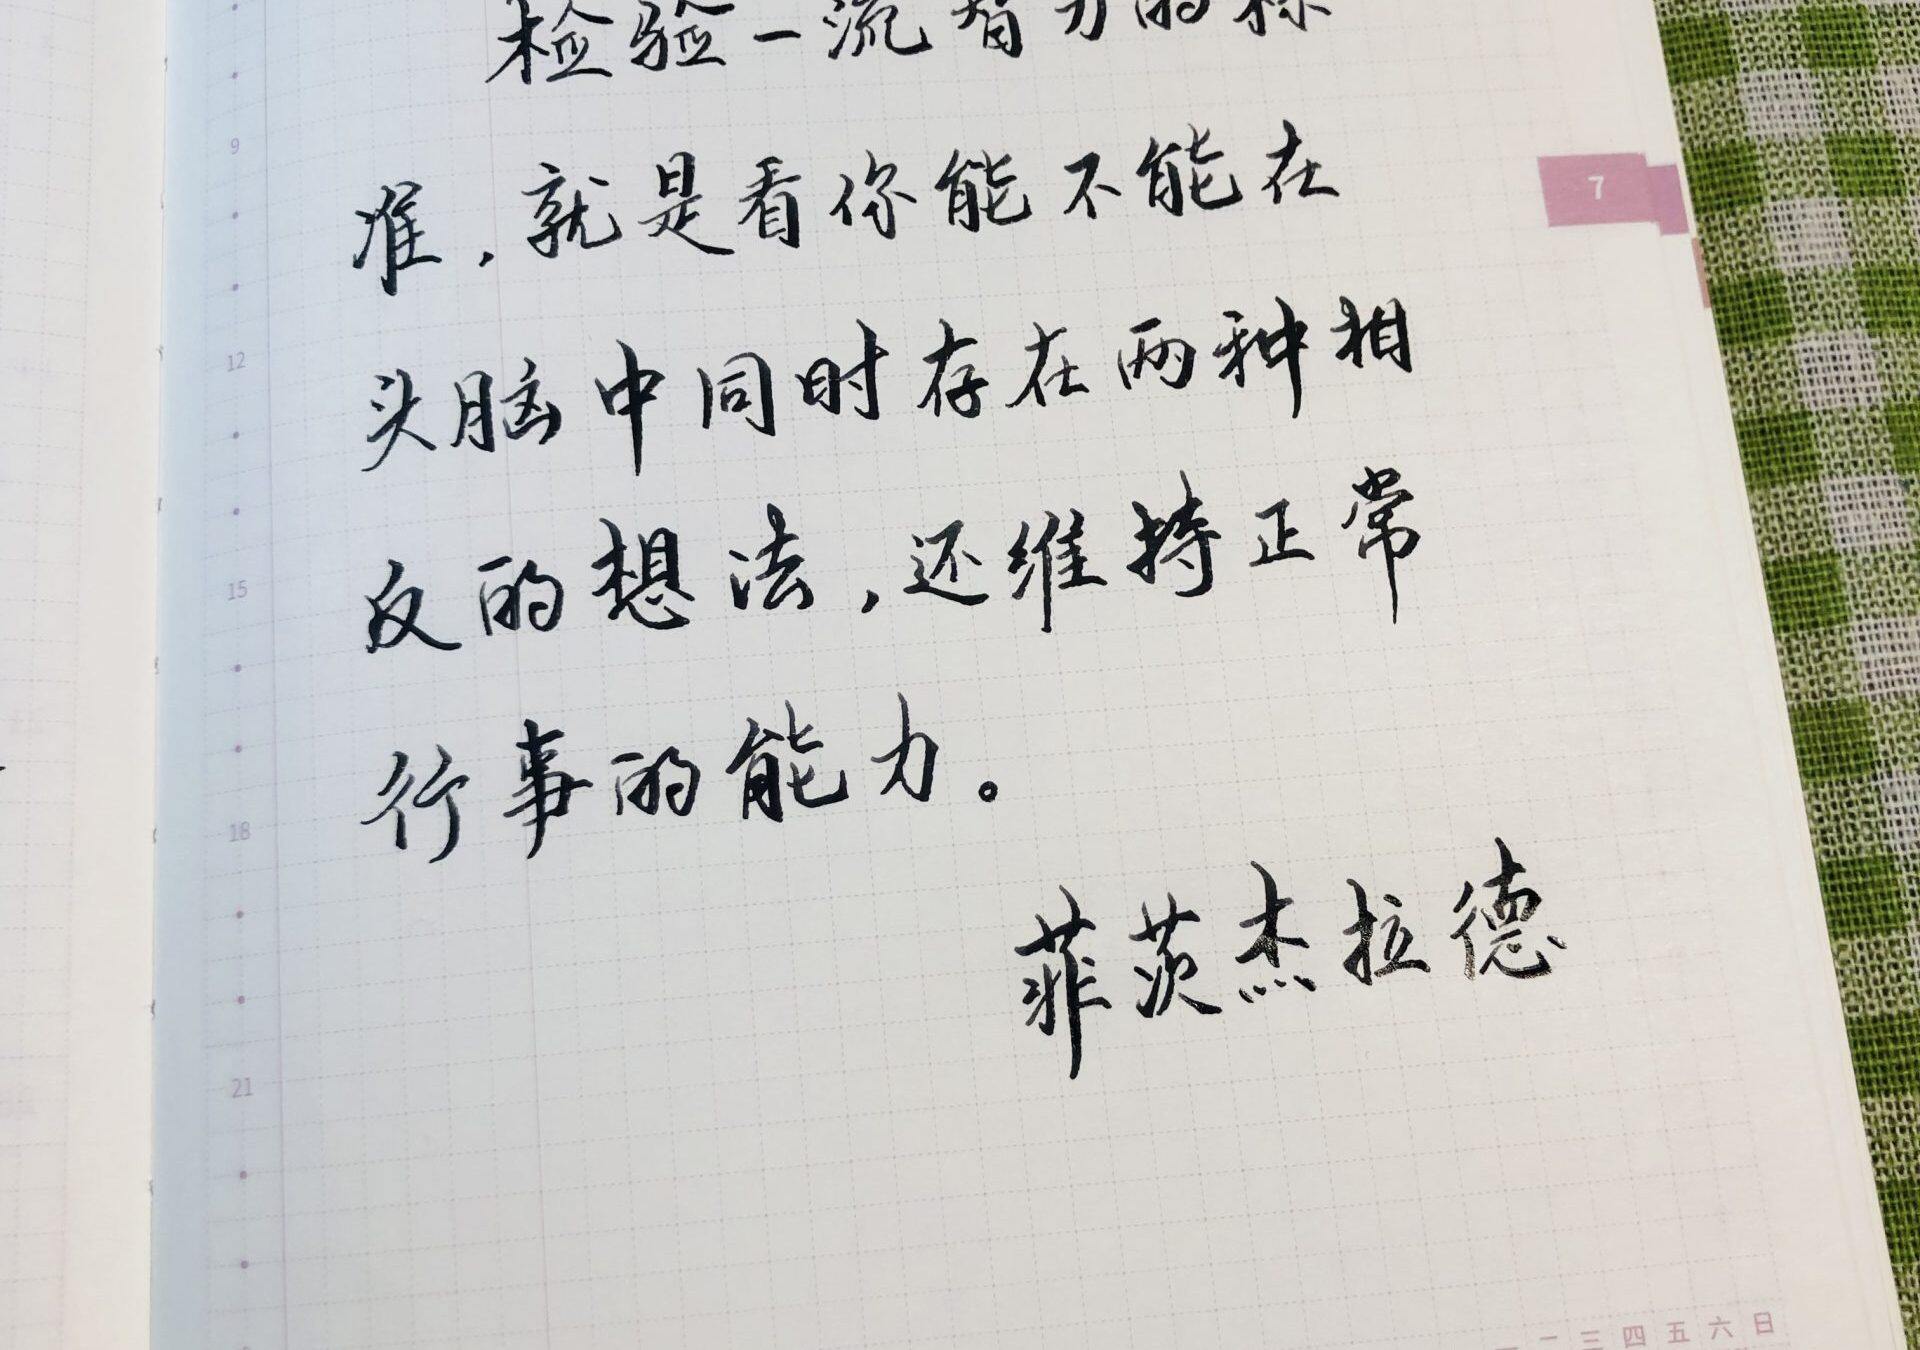 检验一流智力的标
9
准，就是看你能不能在
7
头脑中同时存在两种相
12
反的想法，还维持正常
15
行事的能力。
18
菲茨杰拉德
21
一 二 三 四 五 六 日